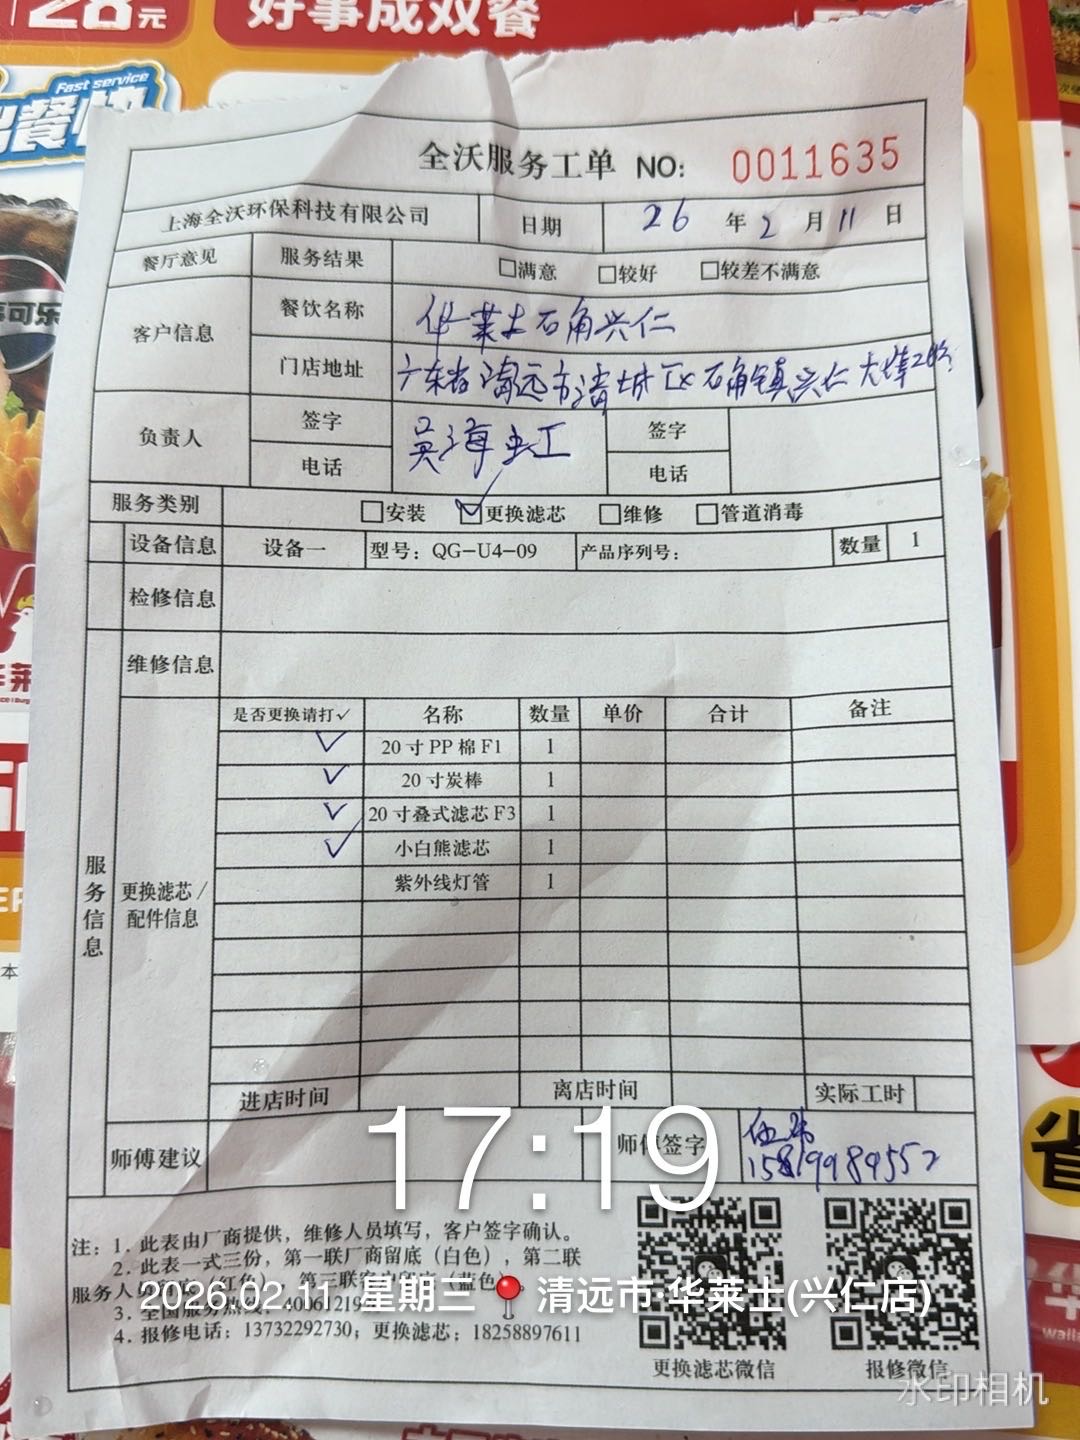 28元
好事成双餐
Fast service
出餐快
全沃服务工单 NO: 0011635
上海全沃环保科技有限公司 日期 26 年 2 月 11 日
餐厅意见 服务结果 □满意 □较好 □较差不满意
客户信息 餐饮名称 华莱士石角兴仁
门店地址 广东省清远市清城区石角镇兴仁大
负责人 签字 吴海 签字
电话 电话
服务类别 □安装 ☑更换滤芯 □维修 □管道消毒
设备信息 设备一 型号: QG-U4-09 产品序列号: 数量 1
检修信息
维修信息
是否更换请打✓ 名称 数量 单价 合计 备注
✓ 20寸PP棉F1 1
✓ 20寸炭棒 1
✓ 20寸叠式滤芯F3 1
✓ 小白熊滤芯 1
紫外线灯管 1
服务信息
更换滤芯/
配件信息
进店时间 离店时间 实际工时
17:19
师傅建议 师傅签字
注: 1. 此表由厂商提供, 维修人员填写, 客户签字确认。
2. 此表一式三份, 第一联厂商留底 (白色), 第二联
服务人员
3. 全国服务热线
4. 报修电话: 13732292730; 更换滤芯: 18258897611
2026.02.11 星期三 清远市·华莱士(兴仁店)
更换滤芯微信 报修微信
水印相机
可乐
省